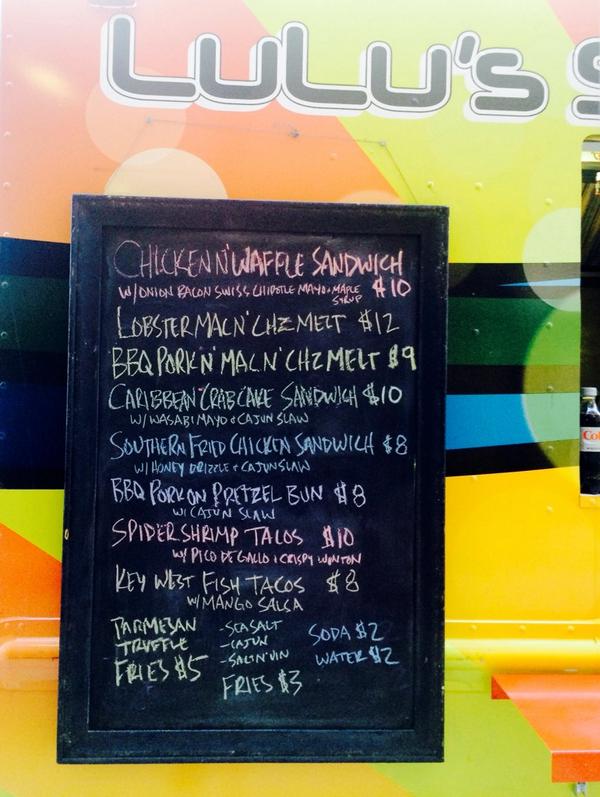 LULU'S S
CHICKEN N' WAFFLE SANDWICH
W/ONION BACON SWISS CHIPOTLE MAYO + MAPLE SYRUP $10
LOBSTER MAC N' CHZ MELT $12
BBQ PORK N' MAC N' CHZ MELT $9
CARIBBEAN CRAB CAKE SANDWICH $10
W/ WASABI MAYO + CAJUN SLAW
SOUTHERN FRIED CHICKEN SANDWICH $8
W/ HONEY DRIZZLE + CAJUN SLAW
BBQ PORK ON PRETZEL BUN $8
W/ CAJUN SLAW
SPIDER SHRIMP TACOS $10
W/ PICO DE GALLO + CRISPY WONTON
KEY WEST FISH TACOS $8
W/ MANGO SALSA
PARMESAN
TRUFFLE
FRIES $5
-SEA SALT
-CAJUN
-SALT N' VIN
FRIES $3
SODA $2
WATER $2
Co